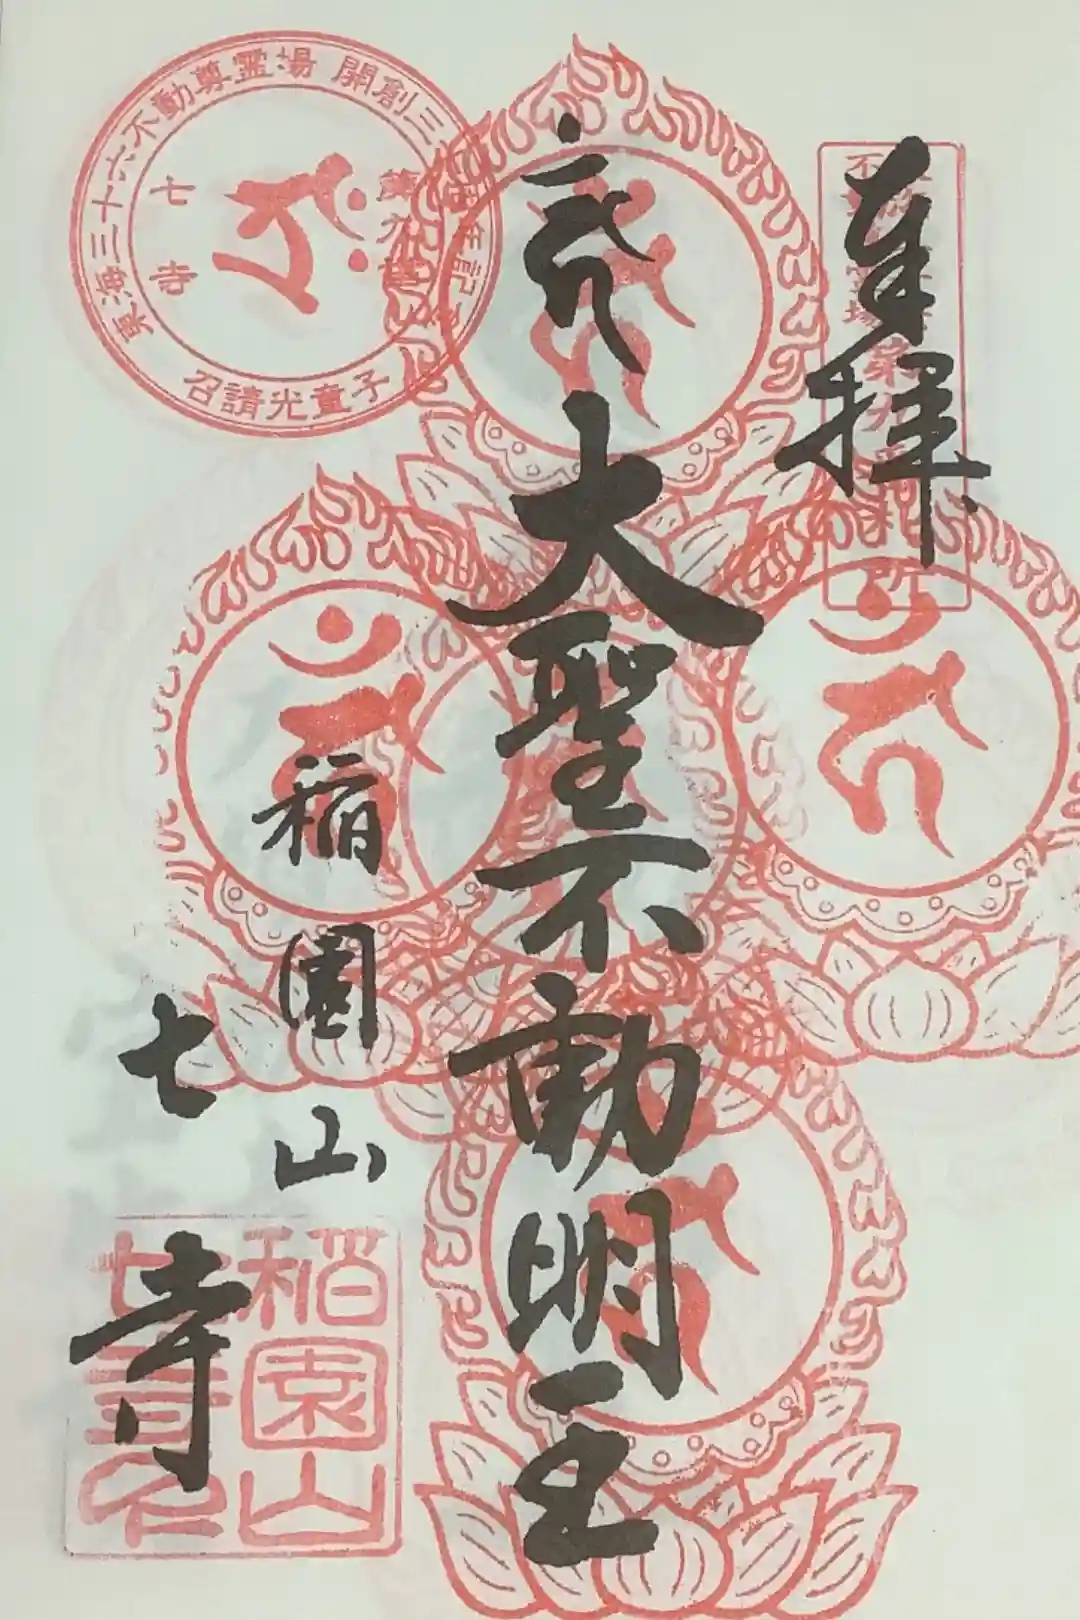 奉拝
大聖不動明王
稲園山
七寺
東海三十六不動尊霊場 開創三
七寺
召請光童子
第九
稲園山